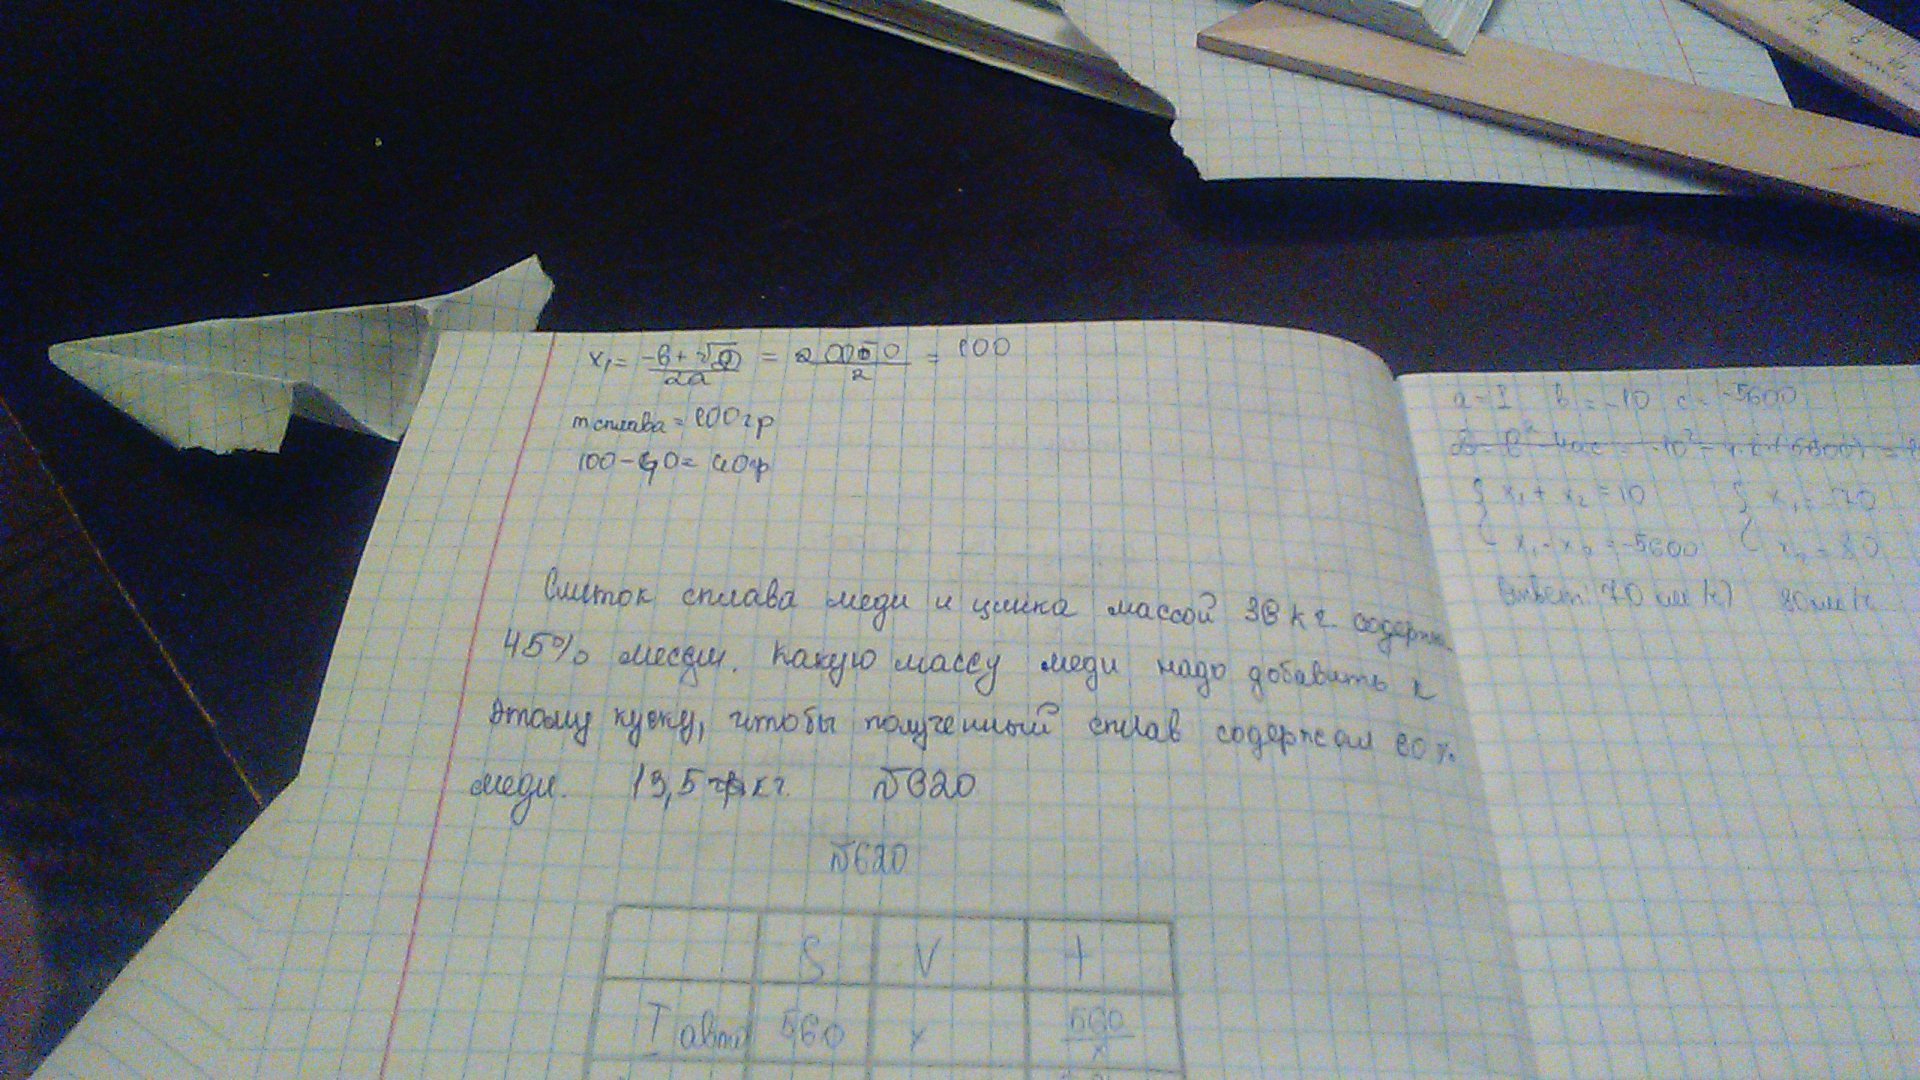 x₁ = (-b + √D)/2a = 200/2 = 100
m сплава = 100гр
100-40=
Слиток сплава меди и цинка массой 36 кг содержит
45% меди. Какую массу меди надо добавить к
этому куску, чтобы полученный сплав содержал 60%
меди. 13,5 кг. №620
№620
S V t
I авто 560 x 560/x
a=1 b=-10 c=-5600
{ x₁ + x₂ = 10 { x₁ =
x₁ · x₂ = -5600 x₂ = 80
Ответ: 70 км/ч 80 км/ч